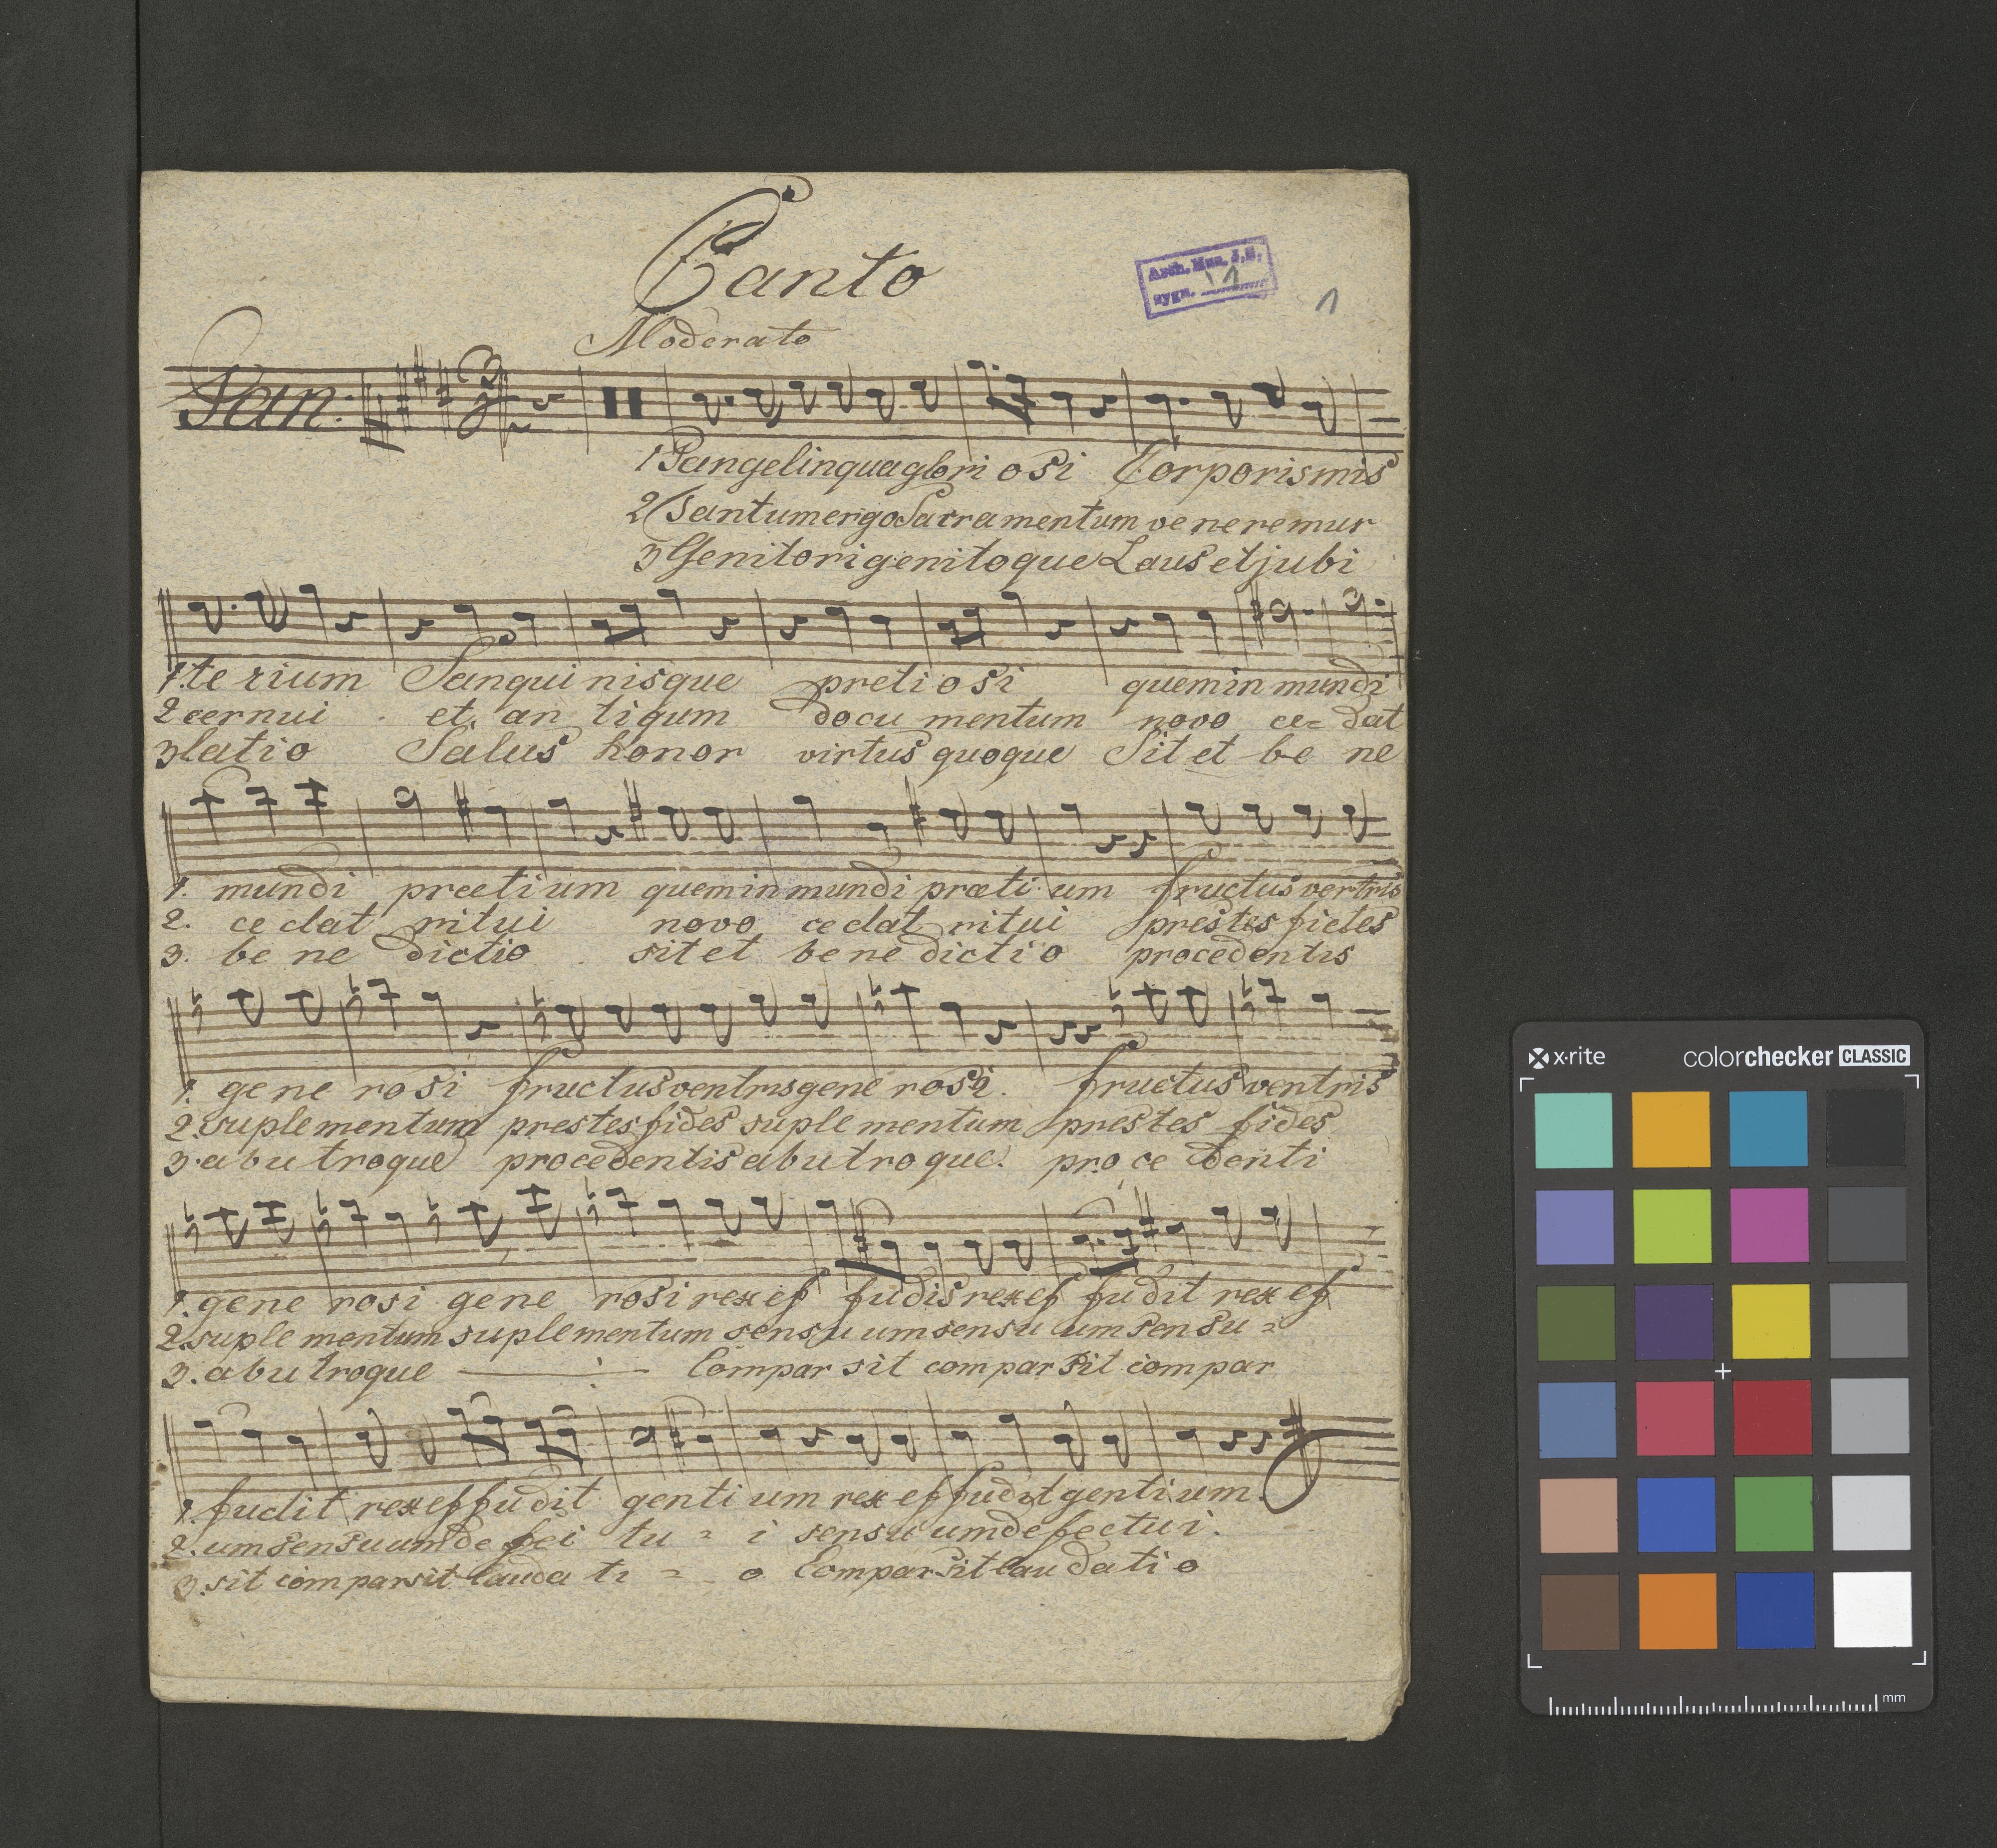 Canto
Arch. Mus. J.G.
sygn. 1
1
Moderato
Pan:
1 Pange lingua glori osi Corporis mis
2 Tantum ergo Sacra mentum ve ne remur
3 Genitori genitoque Laus et jubi
1. te rium Sangui nisque preti o si quem in mundi
2 cernui et an tiqum docu mentum novo ce= dat
3 latio Salus honor virtus quoque Sit et be ne
1. mundi præti um quem in mundi præti um fructus ventris
2. ce dat ritui novo ce dat ritui prestes fides
3. be ne dictio sit et be ne dicti o procedentis
1. gene rosi fructus ventris gene rosi. fructus ventris
2. suple mentum prestes fides suple mentum prestes fides
3. ab u troque procedentis ab u tro que. pro ce denti
1. gene rosi gene rosi rex ef fudis rex ef fudit rex ef
2. suple mentum suplementum sensu um sensu um sensu =
3. ab u troque Compar sit compar sit compar
1. fudit rex ef fudit genti um rex ef fudit genti um.
2. um sensuum de fei tu = i sensu um defectu i.
3. sit compar sit lauda ti = o Compar sit lau dati o
x·rite
colorchecker CLASSIC
mm